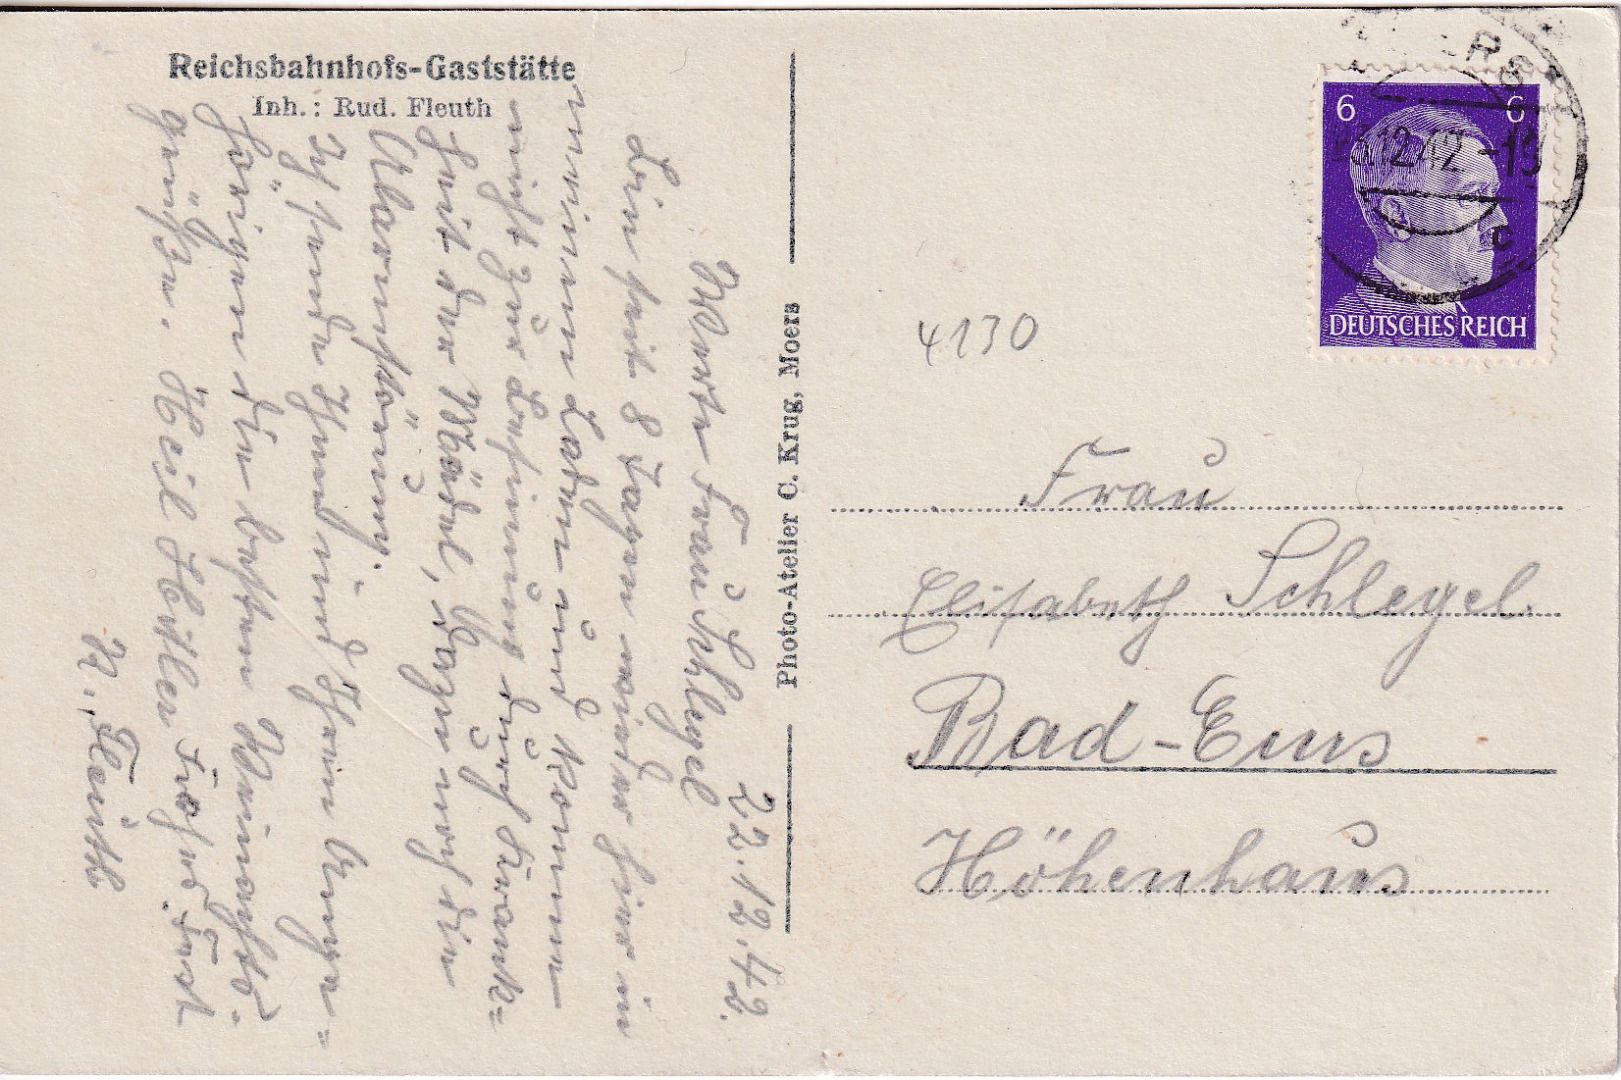 Reichsbahnhofs-Gaststätte
Inh.: Rud. Fleuth
22.12.42.
Werte Frau Schlegel
Bin seit 8 Tagen wieder hier in
meinem Laden und komme
nicht zur Besinnung durch Krank=
heit der Mädel, dazu noch die
Alarmstörung.
Ich sende Ihnen und Ihren Ange=
hörigen die besten Weinachts-
grüße. Heil Hitler
R. Fleuth
Photo-Atelier C. Krug, Moers
6 6
DEUTSCHES REICH
12.42.-19
c
4130
Frau
Elisabeth Schlegel.
Bad-Ems
Höhenhaus